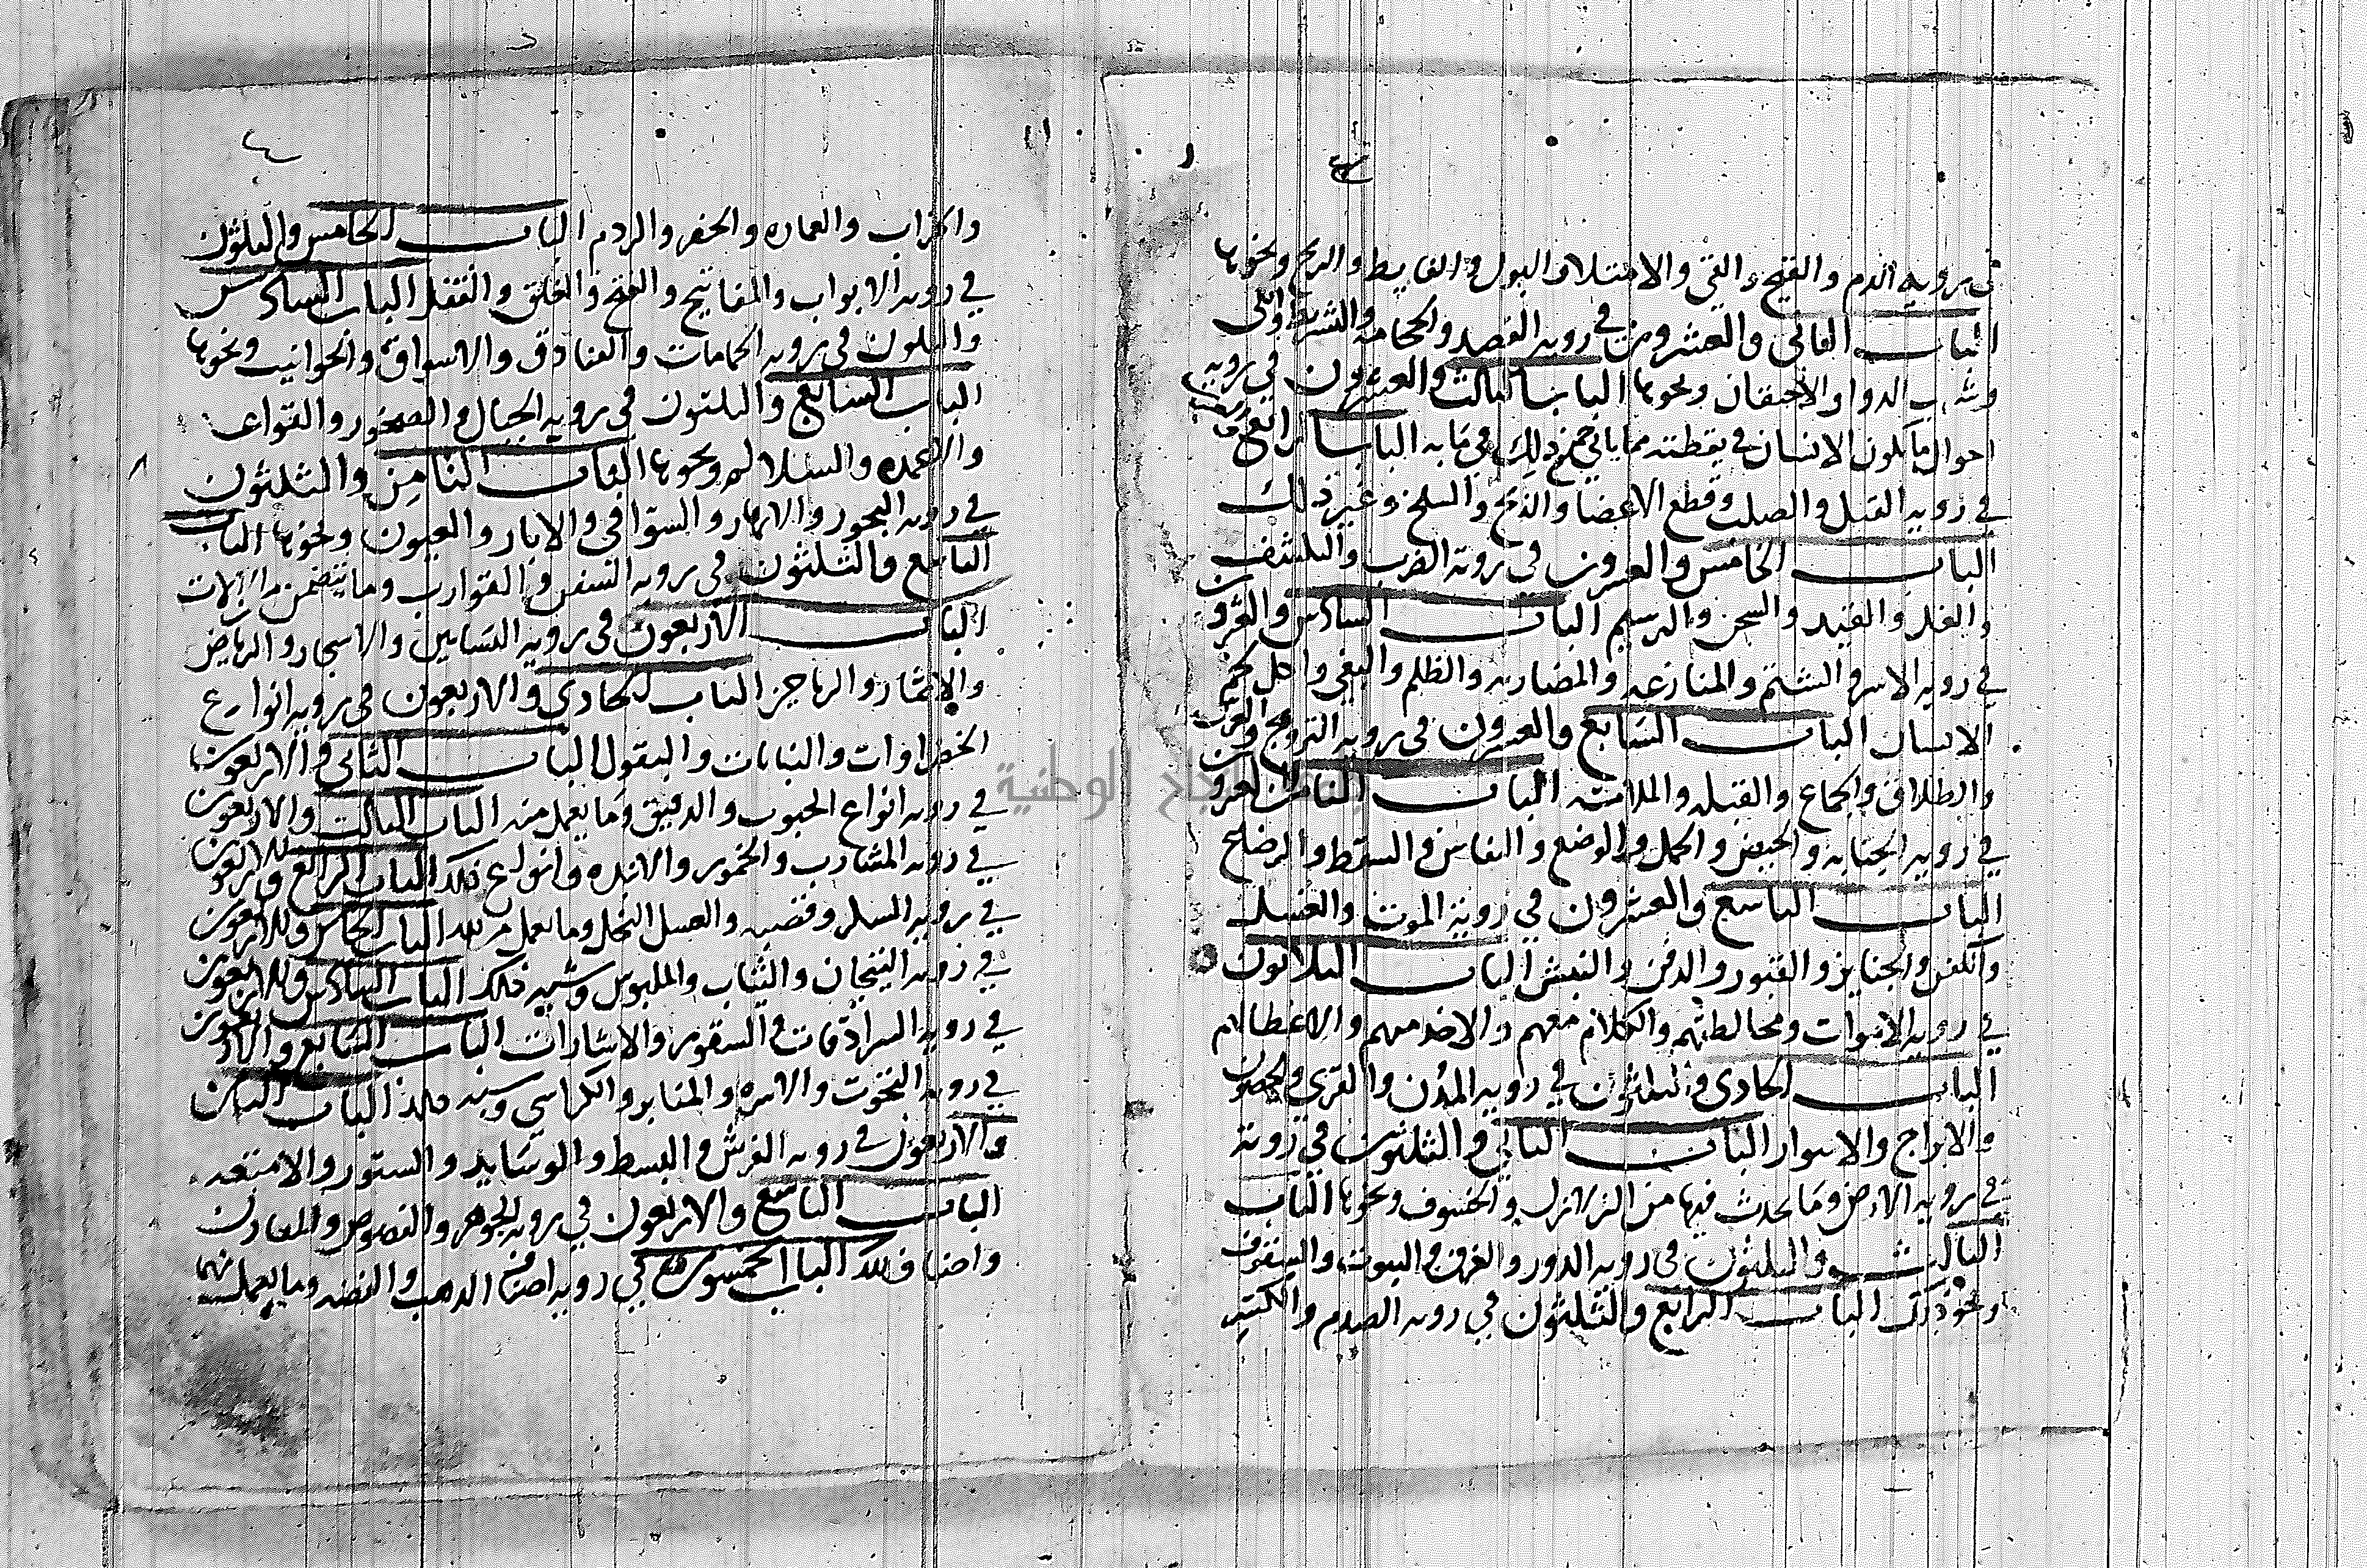 في رويه الدم والقيح والقي والامتلا والبول والغايط والريح ونحوها
الباب الثاني والعشرون في رويه الفصد والحجامه والشرط والكي
وشرب الدوا والاحتقان ونحوها الباب الثالث والعشرون في رويه
احوال ما يكون الانسان في يقظته مما ياتي ذلك في بابه الباب الرابع والعشرون
في رويه القتل والصلب وقطع الاعضا والذبح والسلخ وغير ذلك
الباب الخامس والعشرون في روية الضرب والكتف
والغل والقيد والسجن والترسيم الباب السادس والعشرون
في رويه الاسر والشتم والمنازعه والمضاربه والظلم والبغي واكل لحم
الانسان الباب السابع والعشرون في رويه التزويج والعرس
والطلاق والجماع والقبله والملامسه الباب الثامن والعشرون
في رويه الجنابه والحيض والحمل والوضع والنفاس والسقط والرضاع
الباب التاسع والعشرون في روية الموت والغسل
والكفن والجنايز والقبور والدفن والنبش الباب الثلاثون
في رويه الاموات ومخالطتهم والكلام معهم والاخذ منهم والاعطا لهم
الباب الحادي والثلثون في رويه المدن والقرى والحصون
والابراج والاسوار الباب الثاني والثلثون في روية
في رويه الارض وما يحدث فيها من الزلازل والخسوف ونحوها الباب
الثالث والثلثون في رويه الدور والغرف والبيوت والسقوف
ونحو ذلك الباب الرابع والثلثون في رويه الهدم والكسر
والخراب والعماره والحفر والردم الباب الخامس والثلثون
في رويه الابواب والمفاتيح والفتح والغلق والقفل الباب السادس
والثلثون في رويه الحمامات والفنادق والاسواق والحوانيت ونحوها
الباب السابع والثلثون في رويه الجبال والصخور والقواعد
والاعمده والسلالم ونحوها الباب الثامن والثلثون
في رويه البحور والانهار والسواقي والابار والعيون ونحوها الباب
التاسع والثلثون في رويه السفن والقوارب وما يتضمن من الالات
الباب الاربعون في رويه البساتين والاشجار والرياض
والاثمار والرياحين الباب الحادي والاربعون في رويه انواع
الخضراوات والنباتات والبقول الباب الثاني والاربعون
في رويه انواع الحبوب والدقيق وما يعمل منه الباب الثالث والاربعون
في رويه المشارب والخمور والانبذه وانواع ذلك الباب الرابع والاربعون
في رويه السكر وقصبه والعسل النحل وما يعمل من ذلك الباب الخامس والاربعون
في رويه التيجان والثياب والملبوس وشبه ذلك الباب السادس والاربعون
في رويه السرادقات والستور والاشارات الباب السابع والاربعون
في رويه التخوت والاسره والمنابر والكراسي وشبه ذلك الباب الثامن
والاربعون في رويه الفرش والبسط والوسايد والستور والامتعه
الباب التاسع والاربعون في رويه الجوهر والفصوص والمعادن
واصناف ذلك الباب الخمسون في رويه اصناف الذهب والفضه وما يعمل منهما